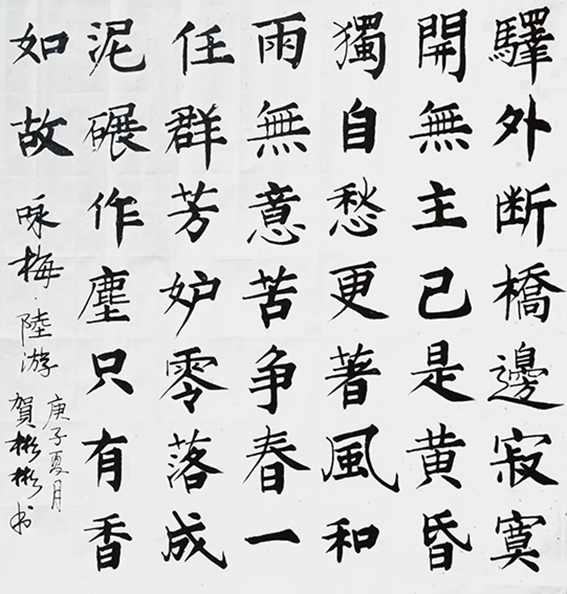 驛外断橋邊寂寞
開無主己是黄昏
獨自愁更著風和
雨無意苦争春一
任群芳妒零落成
泥碾作塵只有香
如故
咏梅·陸游
庚子夏月
賀彬彬书